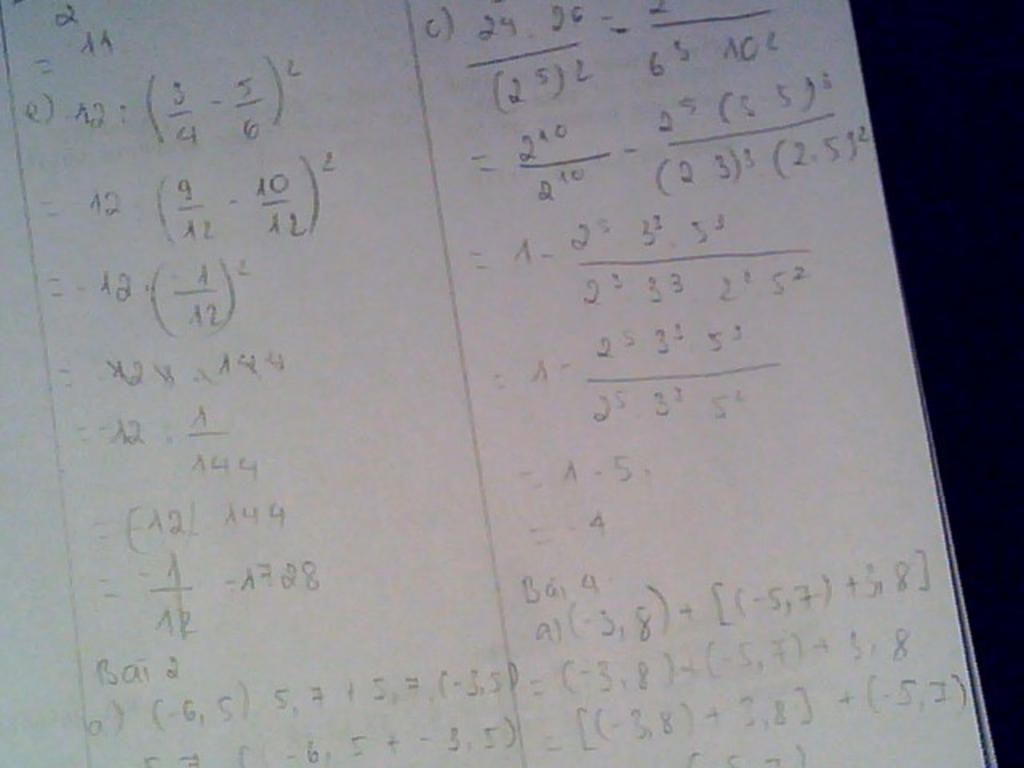 2
= 11
e) -12 : (3/4 - 5/6)²
= 12 · (9/12 - 10/12)²
= -12 · (-1/12)²
= 12 · 144
= -12 · 1/144
= (-12) 144
= -1/12 -1728
Bài 2
a) (-6,5) 5,7 + 5,7 (-3,5)
5,7 ( -6,5 + -3,5)
c) 24 · 26 / (2⁵)² - 2 / 6³ 10²
= 2¹⁰/2¹⁰ - 2⁵ (3 5)³ / (2 3)³ (2.5)²
= 1 - 2⁵ 3³ . 5³ / 2³ 3³ 2² 5²
= 1 - 2⁵ 3³ 5³ / 2⁵ 3³ 5²
= 1 - 5
= -4
Bài 4
a) (-3,8) + [(-5,7) + 3,8]
= (-3,8) + (-5,7) + 3,8
= [(-3,8) + 3,8] + (-5,7)